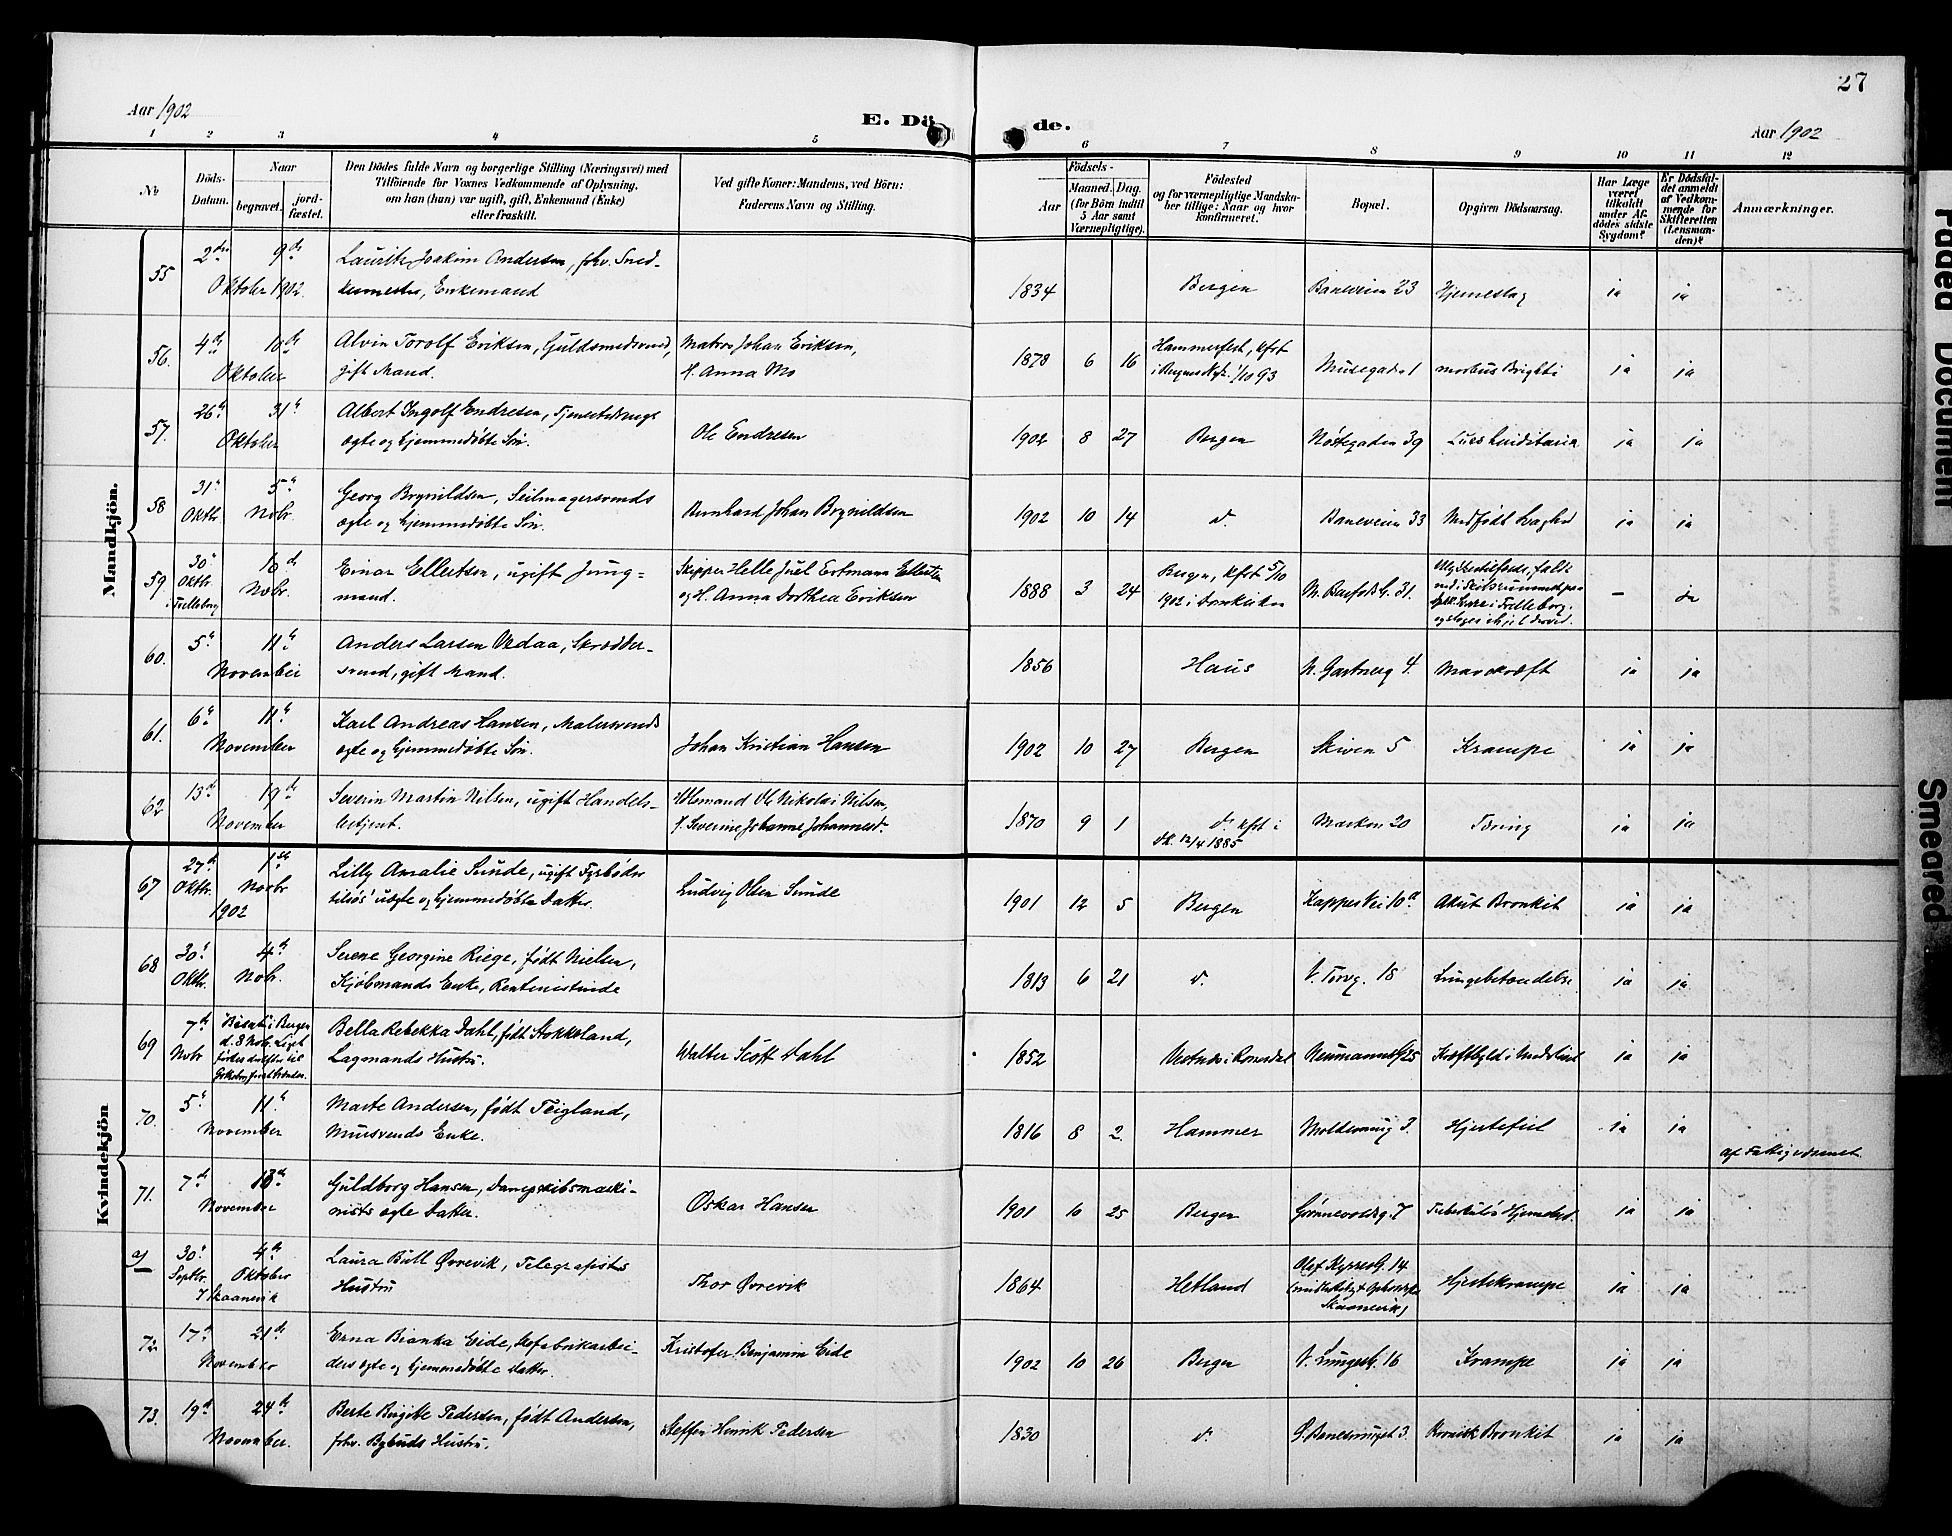 27
Aar 1902
E. Döde.
Aar 1902
1 2 3 4 5 6 7 8 9 10 11 12
No
Døds-Datum.
Naar
begravet.
jordfæstet.
Den Dødes fulde Navn og borgerlige Stilling (Næringsvei) med
Tilføiende for Voxnes Vedkommende af Oplysning,
om han (hun) var ugift, gift, Enkemand (Enke)
eller fraskilt.
Ved gifte Koner: Mandens, ved Börn:
Faderens Navn og Stilling.
Födsels-
Aar
Maaned.
Dag.
(for Børn indtil
5 Aar samt
Værnepligtige).
Födested
og for værnepligtige Mandskaber tillige: Naar og hvor
konfirmeret.
Bopæl.
Opgiven Dödsaarsag.
Har Læge
været
tilkaldt
under Afdödes sidste
Sygdom?
Er Dödsfaldet anmeldt
af Vedkommende for
Skifteretten
(Lensmanden)?
Anmærkninger.
Mandkjön.
55 2den 9de Oktober 1902. Lauritz Joakim Andersen, fhv. Snedkermester, Enkemand 1834 Bergen Baneveien 23 Hjerneslag ja ja
56. 4de 10de Oktober Alvin Torolf Eriksen, Guldsmedsvend, gift Mand. Matros Johan Eriksen, H. Anna Mo 1878 6 16 Hammerfest, kfrt i 1/10 93 Musegaden 1 morbus Brighti ja ja
57. 26de 31te Oktober Albert Ingolf Endresen, ægte og hjemmedøbte Søn. Ole Endresen 1902 8 27 Bergen Nøstegaden 39 ja ja
58 31te Oktbr. 5te Nobr. Georg Brynildsen, Seilmagersvends ægte og hjemmedøbte Søn. Bernhard Johan Brynildsen 1902 10 14 d. Baneveien 33 Medfødt Svaghed ja ja
59. 30te Oktbr. i Trelleborg 10de Nobr. Einar Ellertsen, ugift Jungmand. Skipper Helle Juel Ertmann Ellertsen og H. Anna Dorthea Eriksen 1888 3 24 Bergen, kfrt 5/10 1902 i Domkirken 31. - ja
60. 5te 11te November Anders Larsen Vedaa, Skræddersvend, gift Mand. 1856 Haus N. Gartnerg 4. Mavekræft ja ja
61. 6te 11te November Karl Andreas Hansen, Malersvends ægte og hjemmedøbte Søn. Johan Kristian Hansen 1902 10 27 Bergen Skiven 5 Krampe ja ja
62 13de 19de November Severin Martin Nilsen, ugift Handelsbetjent. Ole Nikolai Nilsen, H. Severine Johanne Johannesd. 1870 9 1 d. kfrt i Dk. 12/4 1885 Marken 20 Tæring ja ja
Kvindekjön
67 27de Oktbr. 1ste Novbr 1902 Lilly Amalie Sunde, ugift Fyrbøder uægte og hjemmedøbte Datter. Ludvig Olsen Sunde 1901 12 5 Bergen Kappes Vei 10a Akut Bronkit ja ja
68 30te Oktbr. 4de Nobr. Serene Georgine Riege, født Nielsen, Kjøbmands Enke, Rentenistinde 1813 6 21 d. V. Torvg. 18 Lungebetændelse ja ja
69 7de Nobr Bisat i Bergen d. 8 Nob. Liget Bella Rebekka Dahl, født Stokkeland, Lagmands Hustru. Walter Scott Dahl 1852 Vestnes i Romsdal Neumannsg 25 Kræftbyld i Underlivet ja ja
70. 5te 11te November Marte Andersen, født Teigland, Murersvends Enke. 1816 8 2. Hammer Hjertefeil ja ja af Fattigvæsenet
71. 7de 13de November Guldborg Hansen, Dampskibsmaskinists ægte Datter. Oskar Hansen 1901 10 25 Bergen Grønnevoldsg. 7 ja ja
a) 30te Septbr. 4de Oktober i Skaanevik Laura Bull Øvrevik, Telegrafists Hustru Thor Øvrevik 1864 Hetland Olaf Kyrresg. 14 Skaanevik) Hjertekrampe ja ja
72 17de 21de November Erna Bianka Eide, ægte og hjemmedøbte Datter. Kristofer Benjamin Eide 1902 10 26 Bergen V. Lungeg. 16 Krampe ja ja
73. 19de 24de November. Berte Birgitte Pedersen, født Andersen, fhv. Bybuds Hustru. Steffen Henrik Pedersen 1830 d. 3. Kronisk Bronkit ja ja
Faded Document
Smeared